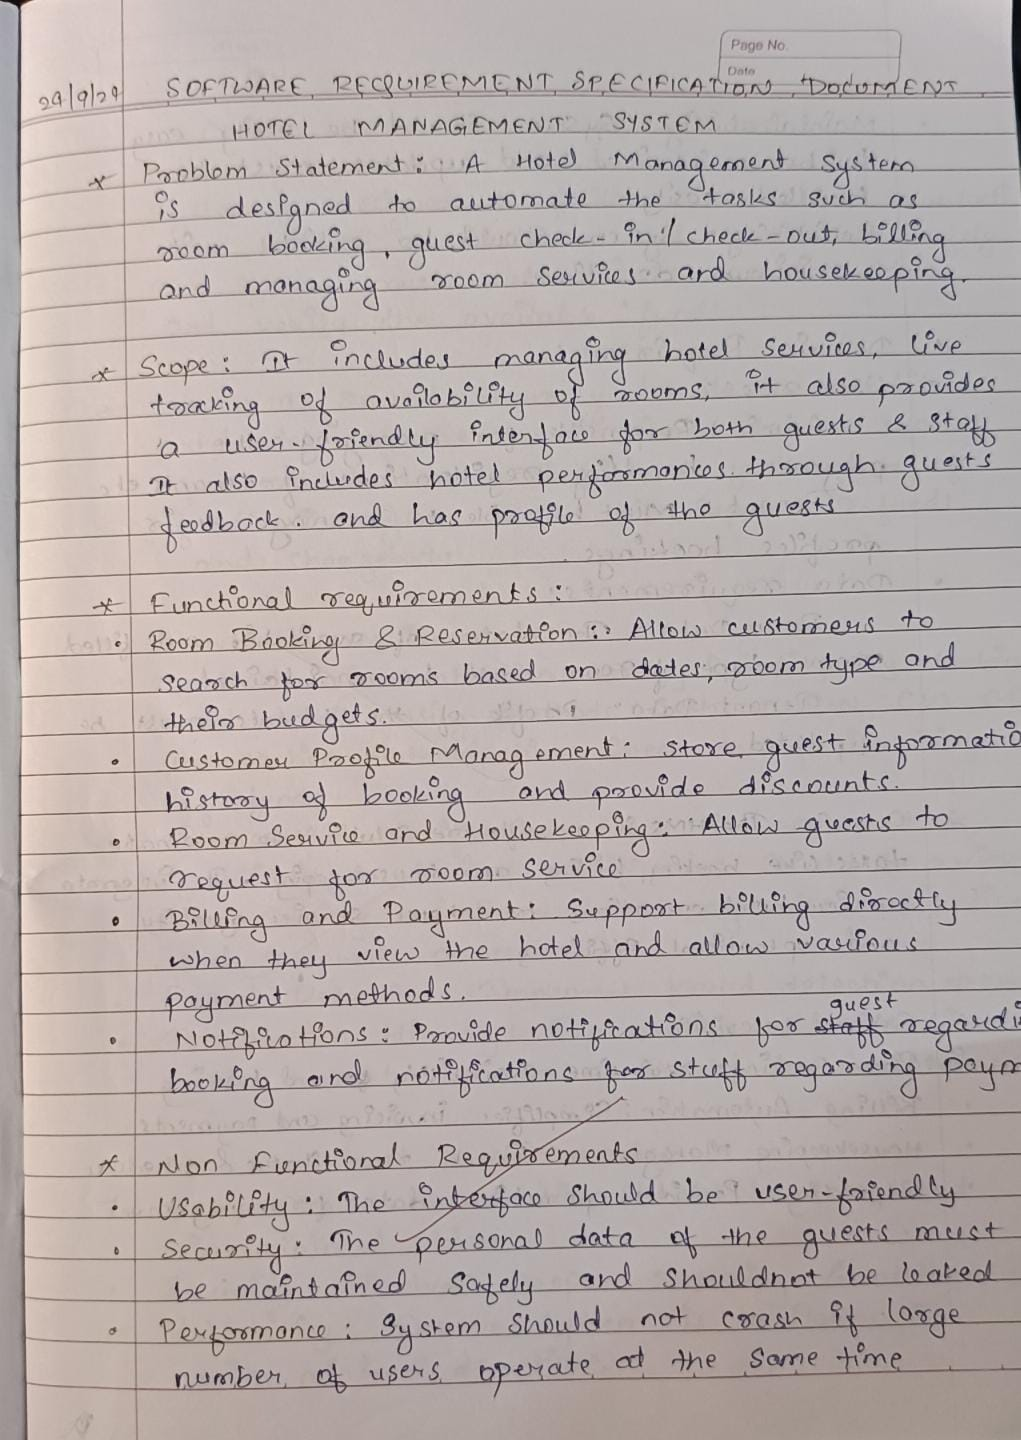 Page No.
Date
24/9/24 SOFTWARE REQUIREMENT SPECIFICATION DOCUMENT
HOTEL MANAGEMENT SYSTEM
* Problem Statement: A Hotel Management System
is designed to automate the tasks such as
room booking, guest check-in/check-out, billing
and managing room services and housekeeping.
* Scope: It includes managing hotel services, live
tracking of availability of rooms, it also provides
a user-friendly interface for both guests & staff
It also includes hotel performances through guests
feedback. and has profile of the guests
* Functional requirements:
• Room Booking & Reservation: Allow customers to
search for rooms based on dates, room type and
their budgets.
• Customer Profile Management: store guest informatio
history of booking and provide discounts.
• Room Service and Housekeeping: Allow guests to
request for room service
• Billing and Payment: Support billing directly
when they view the hotel and allow various
payment methods.
guest
• Notifications: Provide notifications for staff regardi
booking and notifications for staff regarding paym
* Non Functional Requirements
• Usability: The interface should be user-friendly
• Security: The personal data of the guests must
be maintained safely and shouldnot be leaked
• Performance: System should not crash if large
number of users operate at the same time